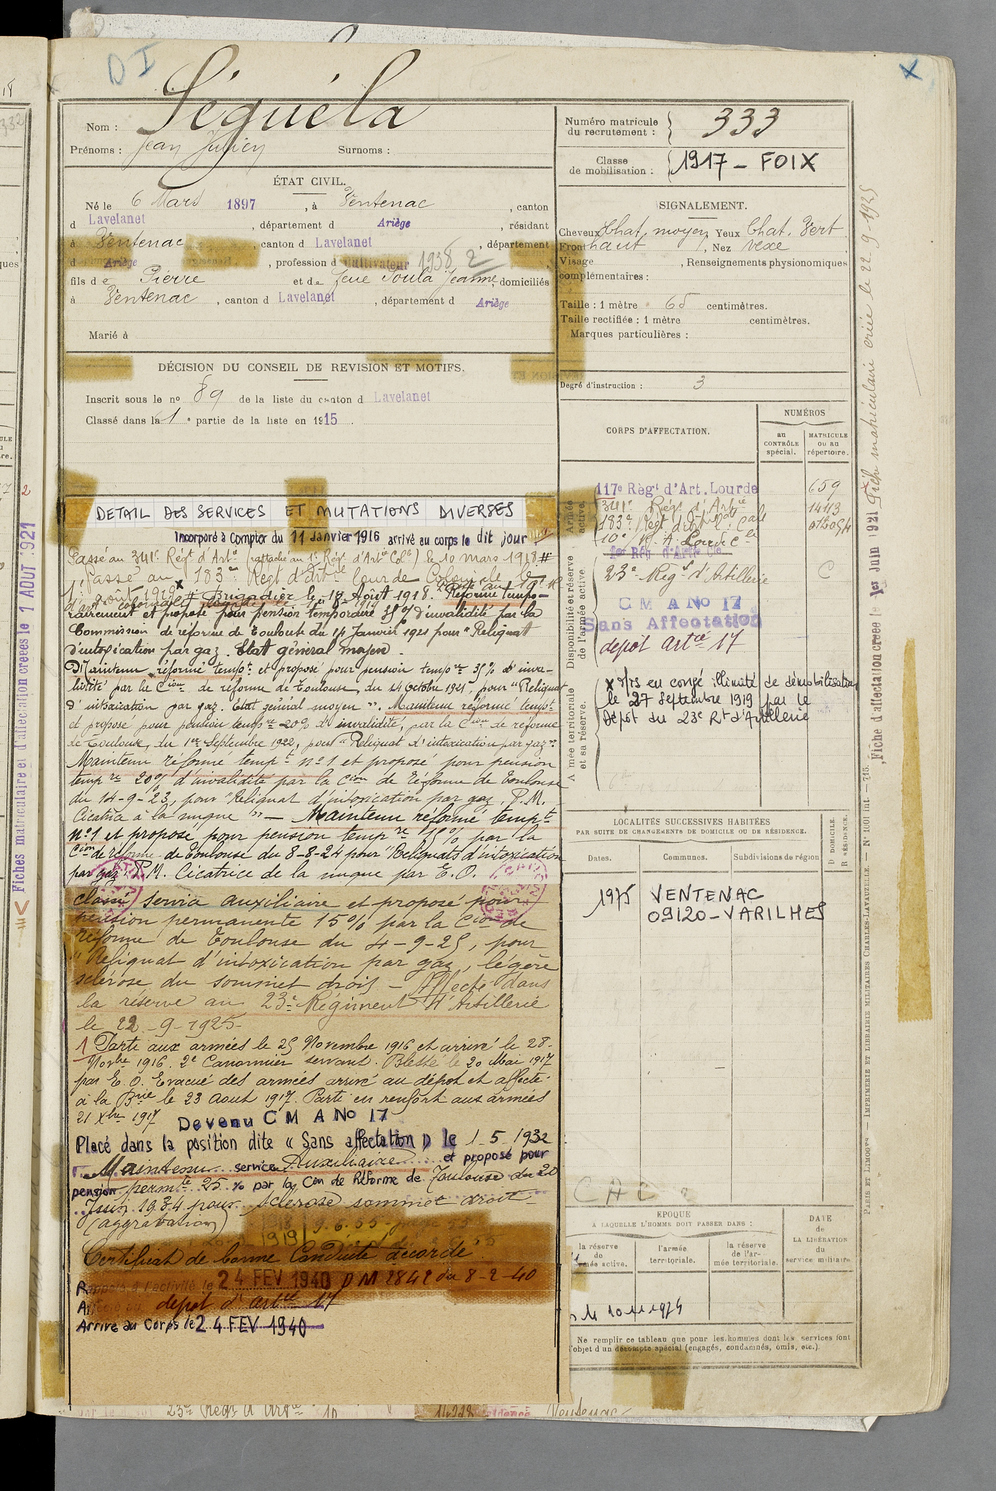 DI
X
Nom : Séguéla
Prénoms : Jean Julien Surnoms :
Numéro matricule du recrutement : 333
Classe de mobilisation : 1917 - FOIX
ÉTAT CIVIL.
Né le 6 Mars 1897, à Ventenac, canton
d Lavelanet, département d Ariège, résidant
à Ventenac, canton d Lavelanet, département
d Ariège, profession d cultivateur 1938 2
fils de Pierre et de feue Soula Jeanne, domiciliés
à Ventenac, canton d Lavelanet, département d Ariège
Marié à
SIGNALEMENT.
Cheveux Chat. moyen Yeux Chat. Vert
Front haut, Nez vexe
Visage, Renseignements physionomiques
complémentaires :
Taille : 1 mètre 65 centimètres.
Taille rectifiée : 1 mètre centimètres.
Marques particulières :
Degré d'instruction : 3
DÉCISION DU CONSEIL DE REVISION ET MOTIFS.
Inscrit sous le nº 89 de la liste du canton d Lavelanet
Classé dans la 1e partie de la liste en 1915.
CORPS D'AFFECTATION.
NUMÉROS
au CONTRÔLE spécial.
MATRICULE ou au répertoire.
Armée active.
117e Régt d'Art. Lourde 659
341e Régt d'Artie 1443
183e Régt
10e R. A. Lourde
Disponibilité et réserve de l'armée active.
23e Régt d'Artillerie C
C M A No 17
Sans Affectation
dépôt artie 17
Armée territoriale et sa réserve.
x Mis en congé illimité de démobilisation
le 27 Septembre 1919 par le
Dépôt du 23e Rt d'Artillerie
DETAIL DES SERVICES ET MUTATIONS DIVERSES
Incorporé à Compter du 11 janvier 1916 arrivé au corps le dit jour
Passé au 341e Régt d'Artie (rattaché au 1er Régt d'Artie Cle) le 10 mars 1918 #
Passé au 183e Régt d'Artie lourde Coloniale le
1er août 1918 x # Brigadier le 18 Août 1918. Réformé tempo-
rairement et proposé pour pension temporaire 35% d'invalidité par la
Commission de réforme de Toulouse du 14 Janvier 1921 pour "Reliquat
d'intoxication par gaz. Etat général moyen.
Maintenu réformé tempt et proposé pour pension tempre 35% d'inva-
lidité par la Cion de réforme de Toulouse, du 14 Octobre 1921, pour "Reliquat
d'intoxication par gaz. Etat général moyen", Maintenu réformé tempt
et proposé pour pension tempre 20% d'invalidité, par la Cion de réforme
de Toulouse, du 1er Septembre 1922, pour "Reliquat d'intoxication par gaz".
Maintenu réformé tempt nº1 et proposé pour pension
tempre 20% d'invalidité par la Cion de Réforme de Toulouse
du 14-9-23, pour "Reliquat d'intoxication par gaz. P.M.
Cicatrice à la nuque" — Maintenu réformé tempt
nº1 et proposé pour pension tempre 10% par la
Cion de réforme de Toulouse du 8-8-24 pour "Reliquats d'intoxication
par gaz. P.M. Cicatrice de la nuque par E.O.
classé service auxiliaire et proposé pour
pension permanente 15% par la Cion de
réforme de Toulouse du 4-9-25, pour
"Reliquat d'intoxication par gaz, légère
sclérose du sommet droit - Affecté dans
la réserve au 23e Régiment d'Artillerie
le 22-9-1925-
1 Parti aux armées le 25 Novembre 1916 et arrivé le 28-
Novbre 1916. 2e Canonnier servant. Blessé le 20 Mai 1917
par E.O. Evacué des armées arrivé au dépôt et affecté
à la Brie le 23 Aout 1917. Parti en renfort aux armées
21 Xbre 1917
Devenu C M A No 17
Placé dans la position dite « Sans affectation » le 1-5-1932
Maintenu service Auxiliaire et proposé pour
pension permte 25% par la Con de Réforme de Toulouse du 20
Juin 1934 pour sclérose sommet droit
(aggravation)
Certificat de bonne Conduite accordé
Rappelé à l'activité le 24 FEV 1940 DM 2842 du 8-2-40
Affecté au dépôt d'artie 17
Arrivé au Corps le 24 FEV 1940
LOCALITÉS SUCCESSIVES HABITÉES
PAR SUITE DE CHANGEMENTS DE DOMICILE OU DE RÉSIDENCE.
Dates. Communes. Subdivisions de région
D DOMICILE. R RÉSIDENCE.
1975 VENTENAC
09120-VARILHES
ÉPOQUE
À LAQUELLE L'HOMME DOIT PASSER DANS :
la réserve de armée active.
l'armée territoriale.
la réserve de l'armée territoriale.
DATE de LA LIBÉRATION du service militaire.
Ne remplir ce tableau que pour les hommes dont les services font
l'objet d'un décompte spécial (engagés, condamnés, omis, etc.).
Fiches matriculaire et d'affectation créées le 1 AOUT 1921
Fiche d'affectation créée le 1er Juin 1921
Fich matriculaire créée le 22-9-1925
PARIS ET LIMOGES. — IMPRIMERIE ET LIBRAIRIE MILITAIRES CHARLES-LAVAUZELLE.